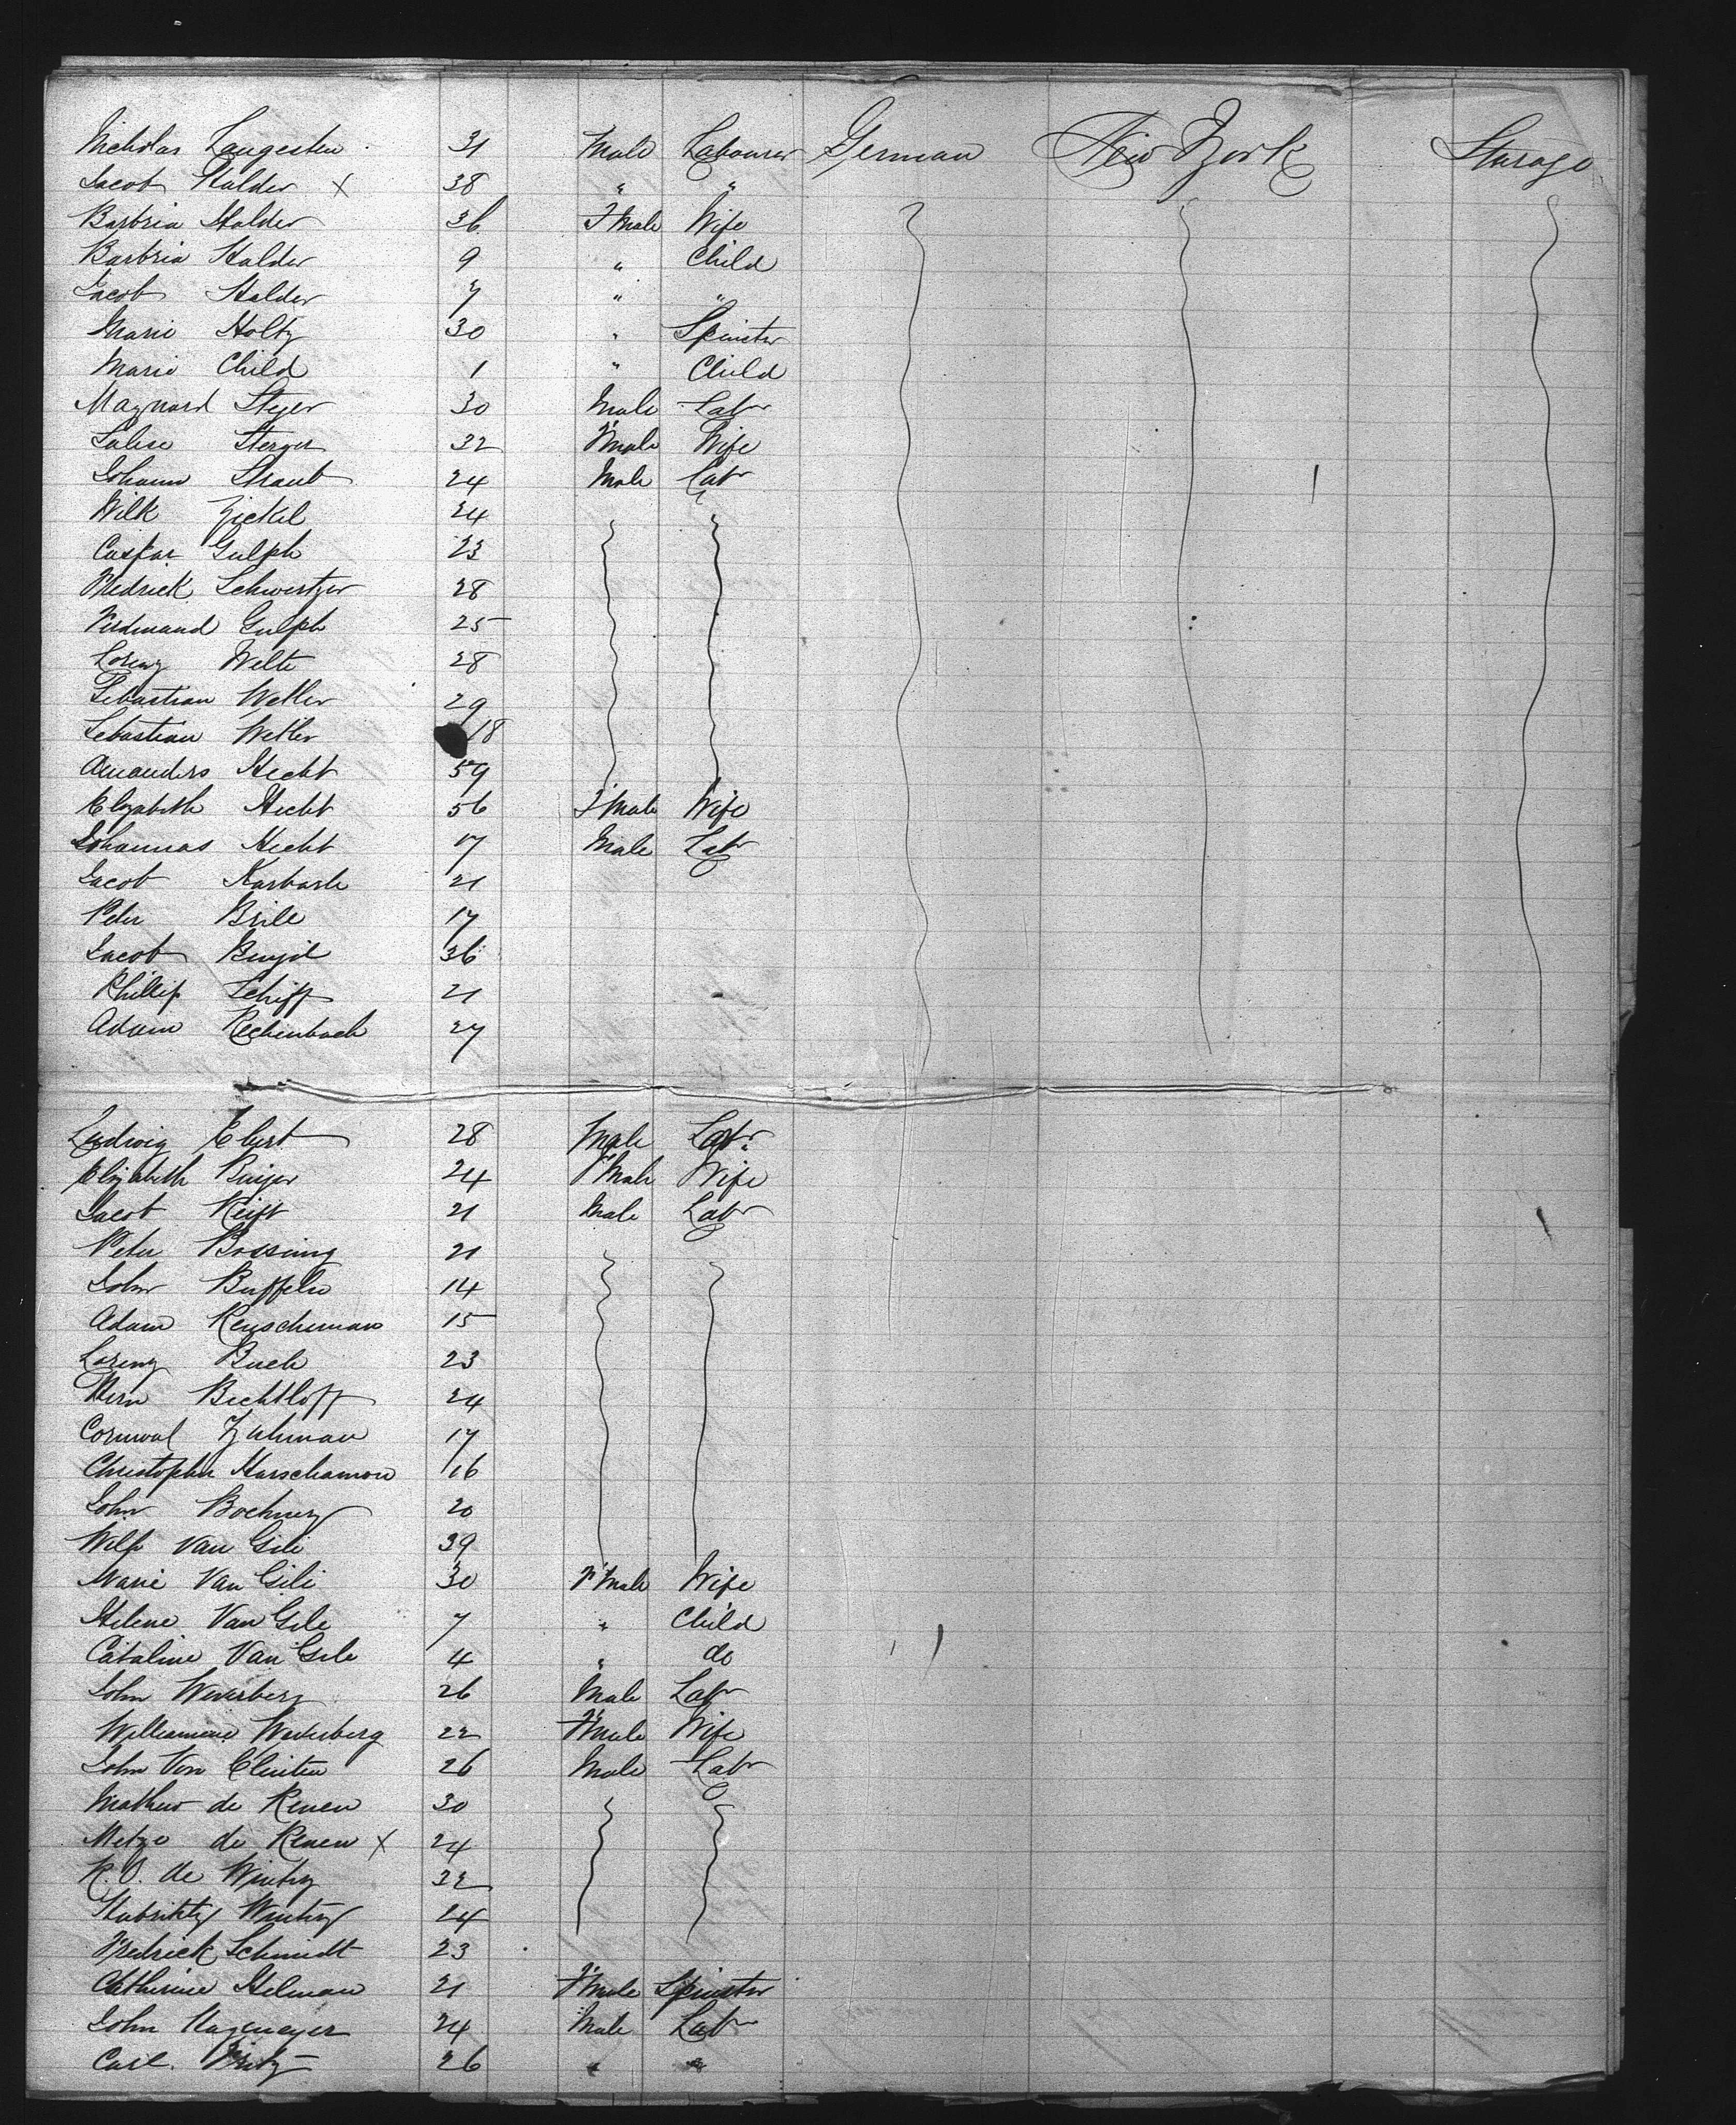 Nicholas Langesten 31 Male Labourer German New York Starage
Jacob Halder X 38 " "
Barbria Halder 36 F Male Wife
Barbria Halder 9 " Child
Jacob Halder 7 " "
Marie Holtz 30 " Spinster
Marie Child 1 " Child
Maynard Steyer 30 Male Labr
32 F Male Wife
Johann Straub 24 Male Labr
Wilk Zickel 24
Caspar Gulph 23
Fredrick Schwertzer 28
Ferdinand Gulph 25
Lorenz Welte 28
Sebastian Wetler 29
Sebastian Wetler 18
Amanders Hecht 59
Elizabeth Hecht 56 F Male Wife
Johannas Hecht 17 Male Labr
Jacob Karbach 21
Peter Brill 17
Jacob 36
Phillip Schiff 21
Adam Rechenbach 27
Ludwig Ebert 28 Male Labr
Elizabeth 24 F Male Wife
Jacob 21 Male Labr
Peter Bossung 21
John 14
Adam 15
Lorenz Buch 23
Hern Bechtloff 24
17
Christopher 16
John 20
Wilh Van Gili 39
Marie Van Gili 30 F Male Wife
Helene Van Gile 7 " Child
Cataline Van Gile 4 " do
John Weverberg 26 Male Labr
22 F Male Wife
John Von Clinten 26 Male Labr
Mathew de Renen 30
Metze de Renen X 24
de 32
24
Fredrick Schmidt 23
Catherine Helman 21 F Male Spinster
John Hagemeyer 24 Male Labr
Carl Fritz 26 " "